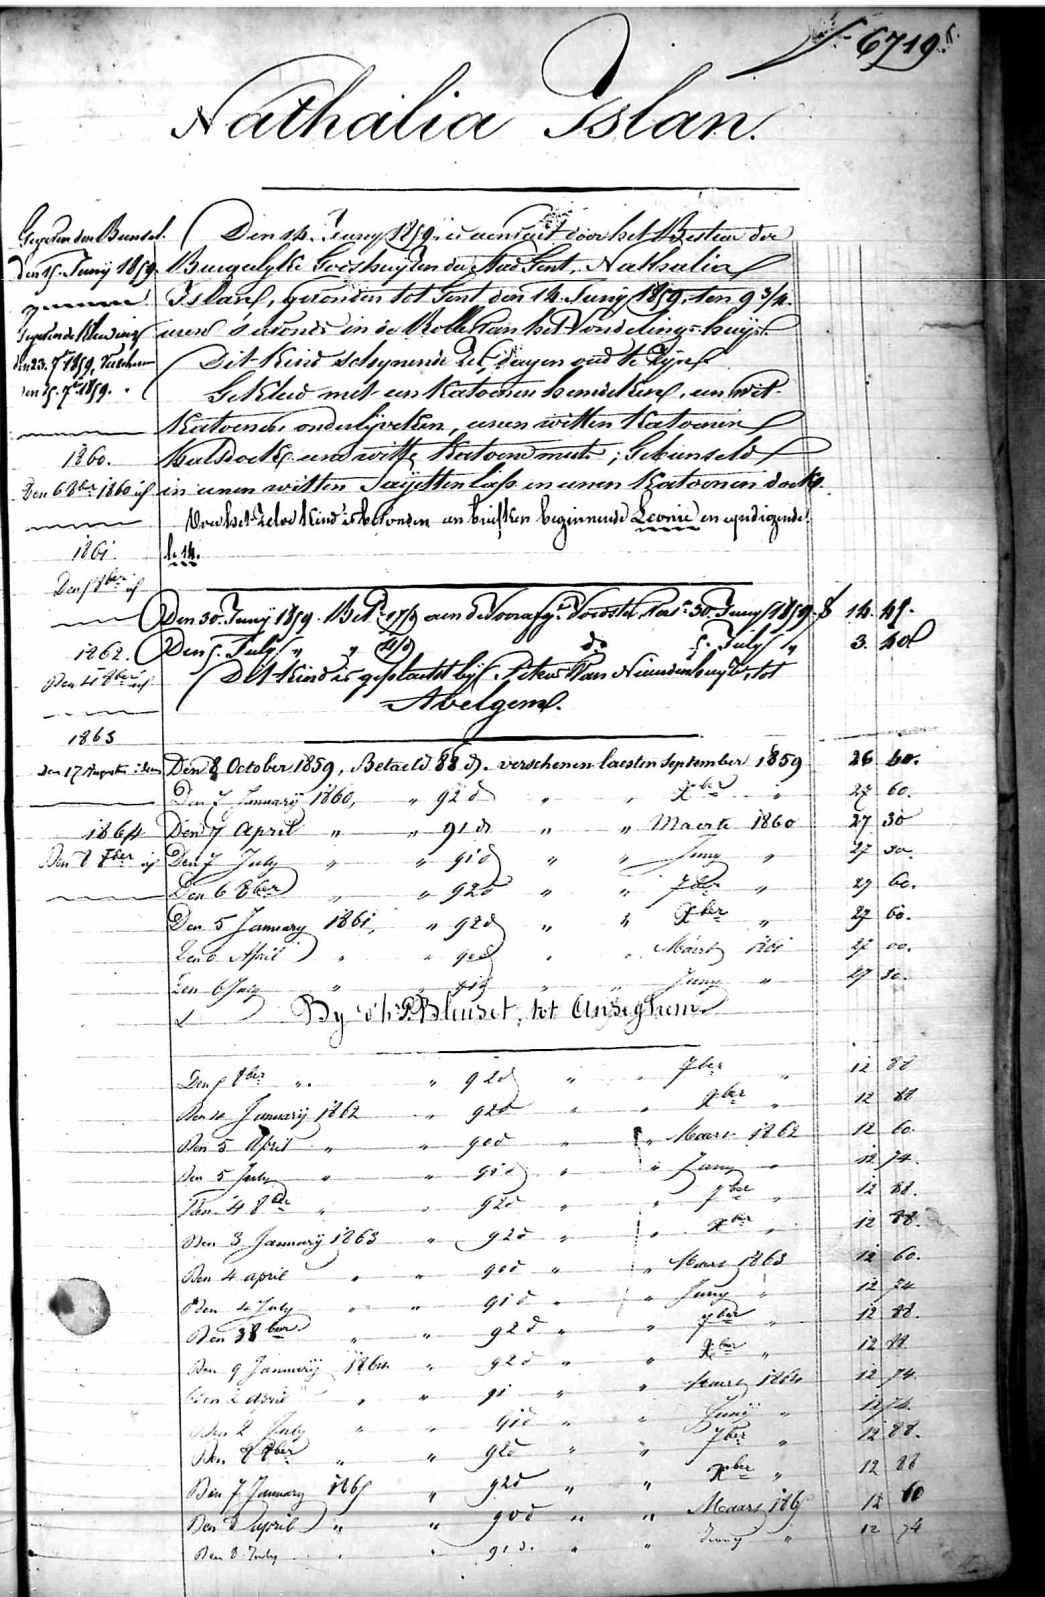 6719.
Nathalia Islan.
Den 14 Juny 1859, is aenvaet door het Bestier der
Burgelyke Godshuyzen der stad Gent, Nathalia
Islan, gevonden tot Gent den 14 Juny 1859, ten 9 3/4
uren s'avonds in de Rolle van het Vondelings-huys.
Dit Kind schynende dagen oud te zyn
Gekleed met een Katoenen hemdeken, een wit
Katoenen onderlyveken, eenen witten Katoenen
halsdoek, een witte Katoene muts; Gebunseld
in eenen witten Sayetten laps en eenen Katoenen doek.
Voor het zelve Kind is bevonden een briefken beginnende Leonie en eyndigende
le 14.
Gegeven den Bunsel.
den 15 Juny 1859
Gegeven de Kleeding
den 23 7ber 1859,
den 7ber 1859.
1860.
Den 6 8ber 1860 id
1861.
Den 8ber id
1862.
Den 4 8ber id
1863
den 17 Augusti idem
1864
Den 8 8ber id
Den 30 Juny 1859 Bet. 17/9 aen de 30 Juny 1859 14. 45.
Den 5 July " " d. 5 July " 3. 40
Dit Kind is geplaetst by Petrus Van Nieuwenhuyse, tot
Avelgem.
Den 8 October 1859, Betaeld 88 d. verschenen laesten September 1859 26 40.
Den 7 January 1860, " 92 d " " Xber " 27 60.
Den 7 April " " 91 d " " Maerte 1860 27 30
Den 7 July " " 91 d " " Juny " 27 30.
Den 6 8ber " " 92 d " " 7ber " 27 60.
Den 5 January 1861, " 92 d " " Xber " 27 60.
Den 6 April " " 90 d " " Maert 1861 27 00.
Den 6 July " " 91 d " " Juny " 27 30.
By d'h. P. Bluiset, tot Anseghem
Den 5 8ber " " 92 d " " 7ber " 12 88
Den 4 January 1862 " 92 d " " Xber " 12 88
Den 5 April " " 90 d " " Maart 1862 12 60.
Den 5 July " " 91 d " " Juny " 12 74.
Den 4 8ber " " 92 d " " 7ber " 12 88.
Den 3 January 1863 " 92 d " " Xber " 12 88.
Den 4 april " " 90 d " " Maart 1863 12 60.
Den 4 July " " 91 d " " Juny " 12 74
Den 3 8ber " " 92 d " " 7ber " 12 88.
Den 9 January 1864 " 92 d " " Xber " 12 88
Den 2 april " " 91 " " Maart 1864 12 74.
Den 2 July " " 91 d " " Juny " 12 74.
Den 8 8ber " " 92 d " " 7ber " 12 88.
Den 7 January 1865 " 92 d " " Xber " 12 88
Den 8 april " " 90 d " " Maart 1865 12 60
Den 8 July " " 91 d. " " Juny " 12 74